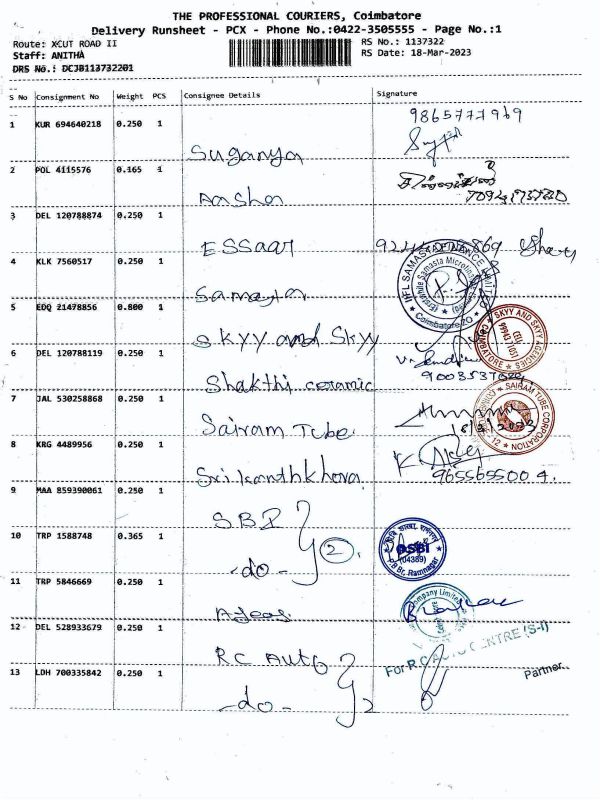 THE PROFESSIONAL COURIERS, Coimbatore
Delivery Runsheet - PCX - Phone No.:0422-3505555 - Page No.:1
Route: XCUT ROAD II RS No.: 1137322
Staff: ANITHA RS Date: 18-Mar-2023
DRS No.: DCJB113732201
S No Consignment No Weight PCS Consignee Details Signature
1 KUR 694640218 0.250 1 Suganya 9865777969
2 POL 4115576 0.165 1
3 DEL 120788874 0.250 1 ESSaar
4 KLK 7560517 0.250 1
IIFL SAMASTA FINANCE LIMITED
Coimbatore
5 EDQ 21478856 0.800 1 Skyy and Skyy
SKYY AND SKYY AGENCIES
COIMBATORE
CELL
6 DEL 120788119 0.250 1 Shakthi ceramic
7 JAL 530258868 0.250 1 Sairam Tube 18/3/2023
SAIRAM TUBE CORPORATION
8 KRG 4489956 0.250 1 9655655004.
9 MAA 859390061 0.250 1 SBI
10 TRP 1588748 0.365 1 -do- 2.
(04389)
P.B Br. Ramnagar
11 TRP 5846669 0.250 1
Company Limited
12 DEL 528933679 0.250 1 RC Auto
For R.C AUTO CENTRE (S-I)
13 LDH 700335842 0.250 1 -do- 2
Partner.